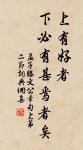 上有好者
下必有甚焉者矣
孟子滕文公章句上第
二節詞典網集